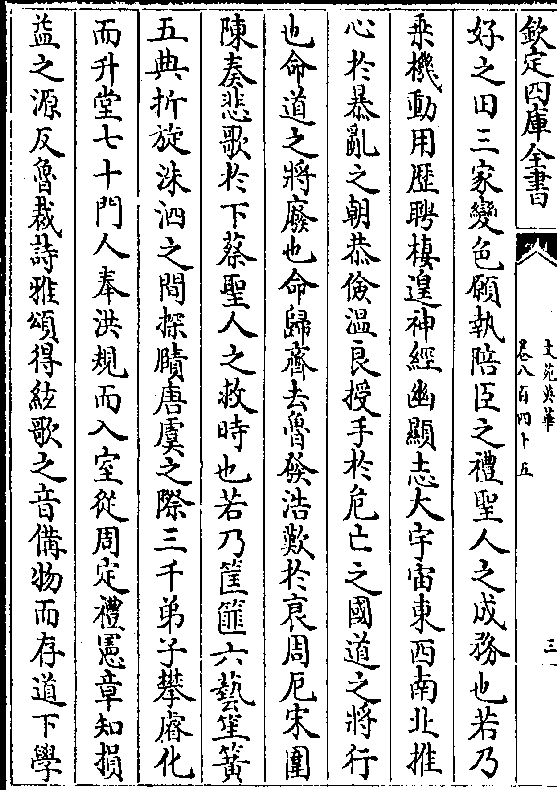 欽定四庫全書
文苑英華
卷八百四十五
三
好之田三家變色願執陪臣之禮聖人之成務也若乃
乗機動用歴聘棲遑神經幽顯志大宇宙東西南北推
心於暴亂之朝恭儉溫良授手於危亡之國道之將行
也命道之將廢也命歸齊去魯發浩歎於衰周厄宋圍
陳奏悲歌於下蔡聖人之救時也若乃筐篚六藝笙簧
五典折旋洙泗之間探賾唐虞之際三千弟子攀睿化
而升堂七十門人奉洪規而入室從周定禮憲章知損
益之源反魯裁詩雅頌得絃歌之音備物而存道下學